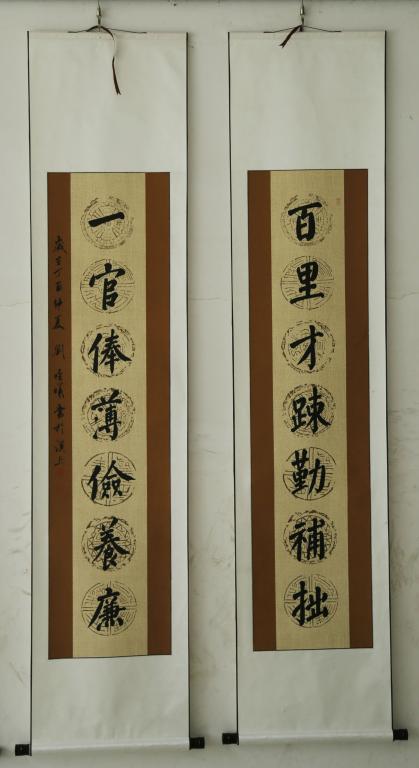 百里才踈勤補拙
一官俸薄儉養廉
歲在丁酉仲夏劉